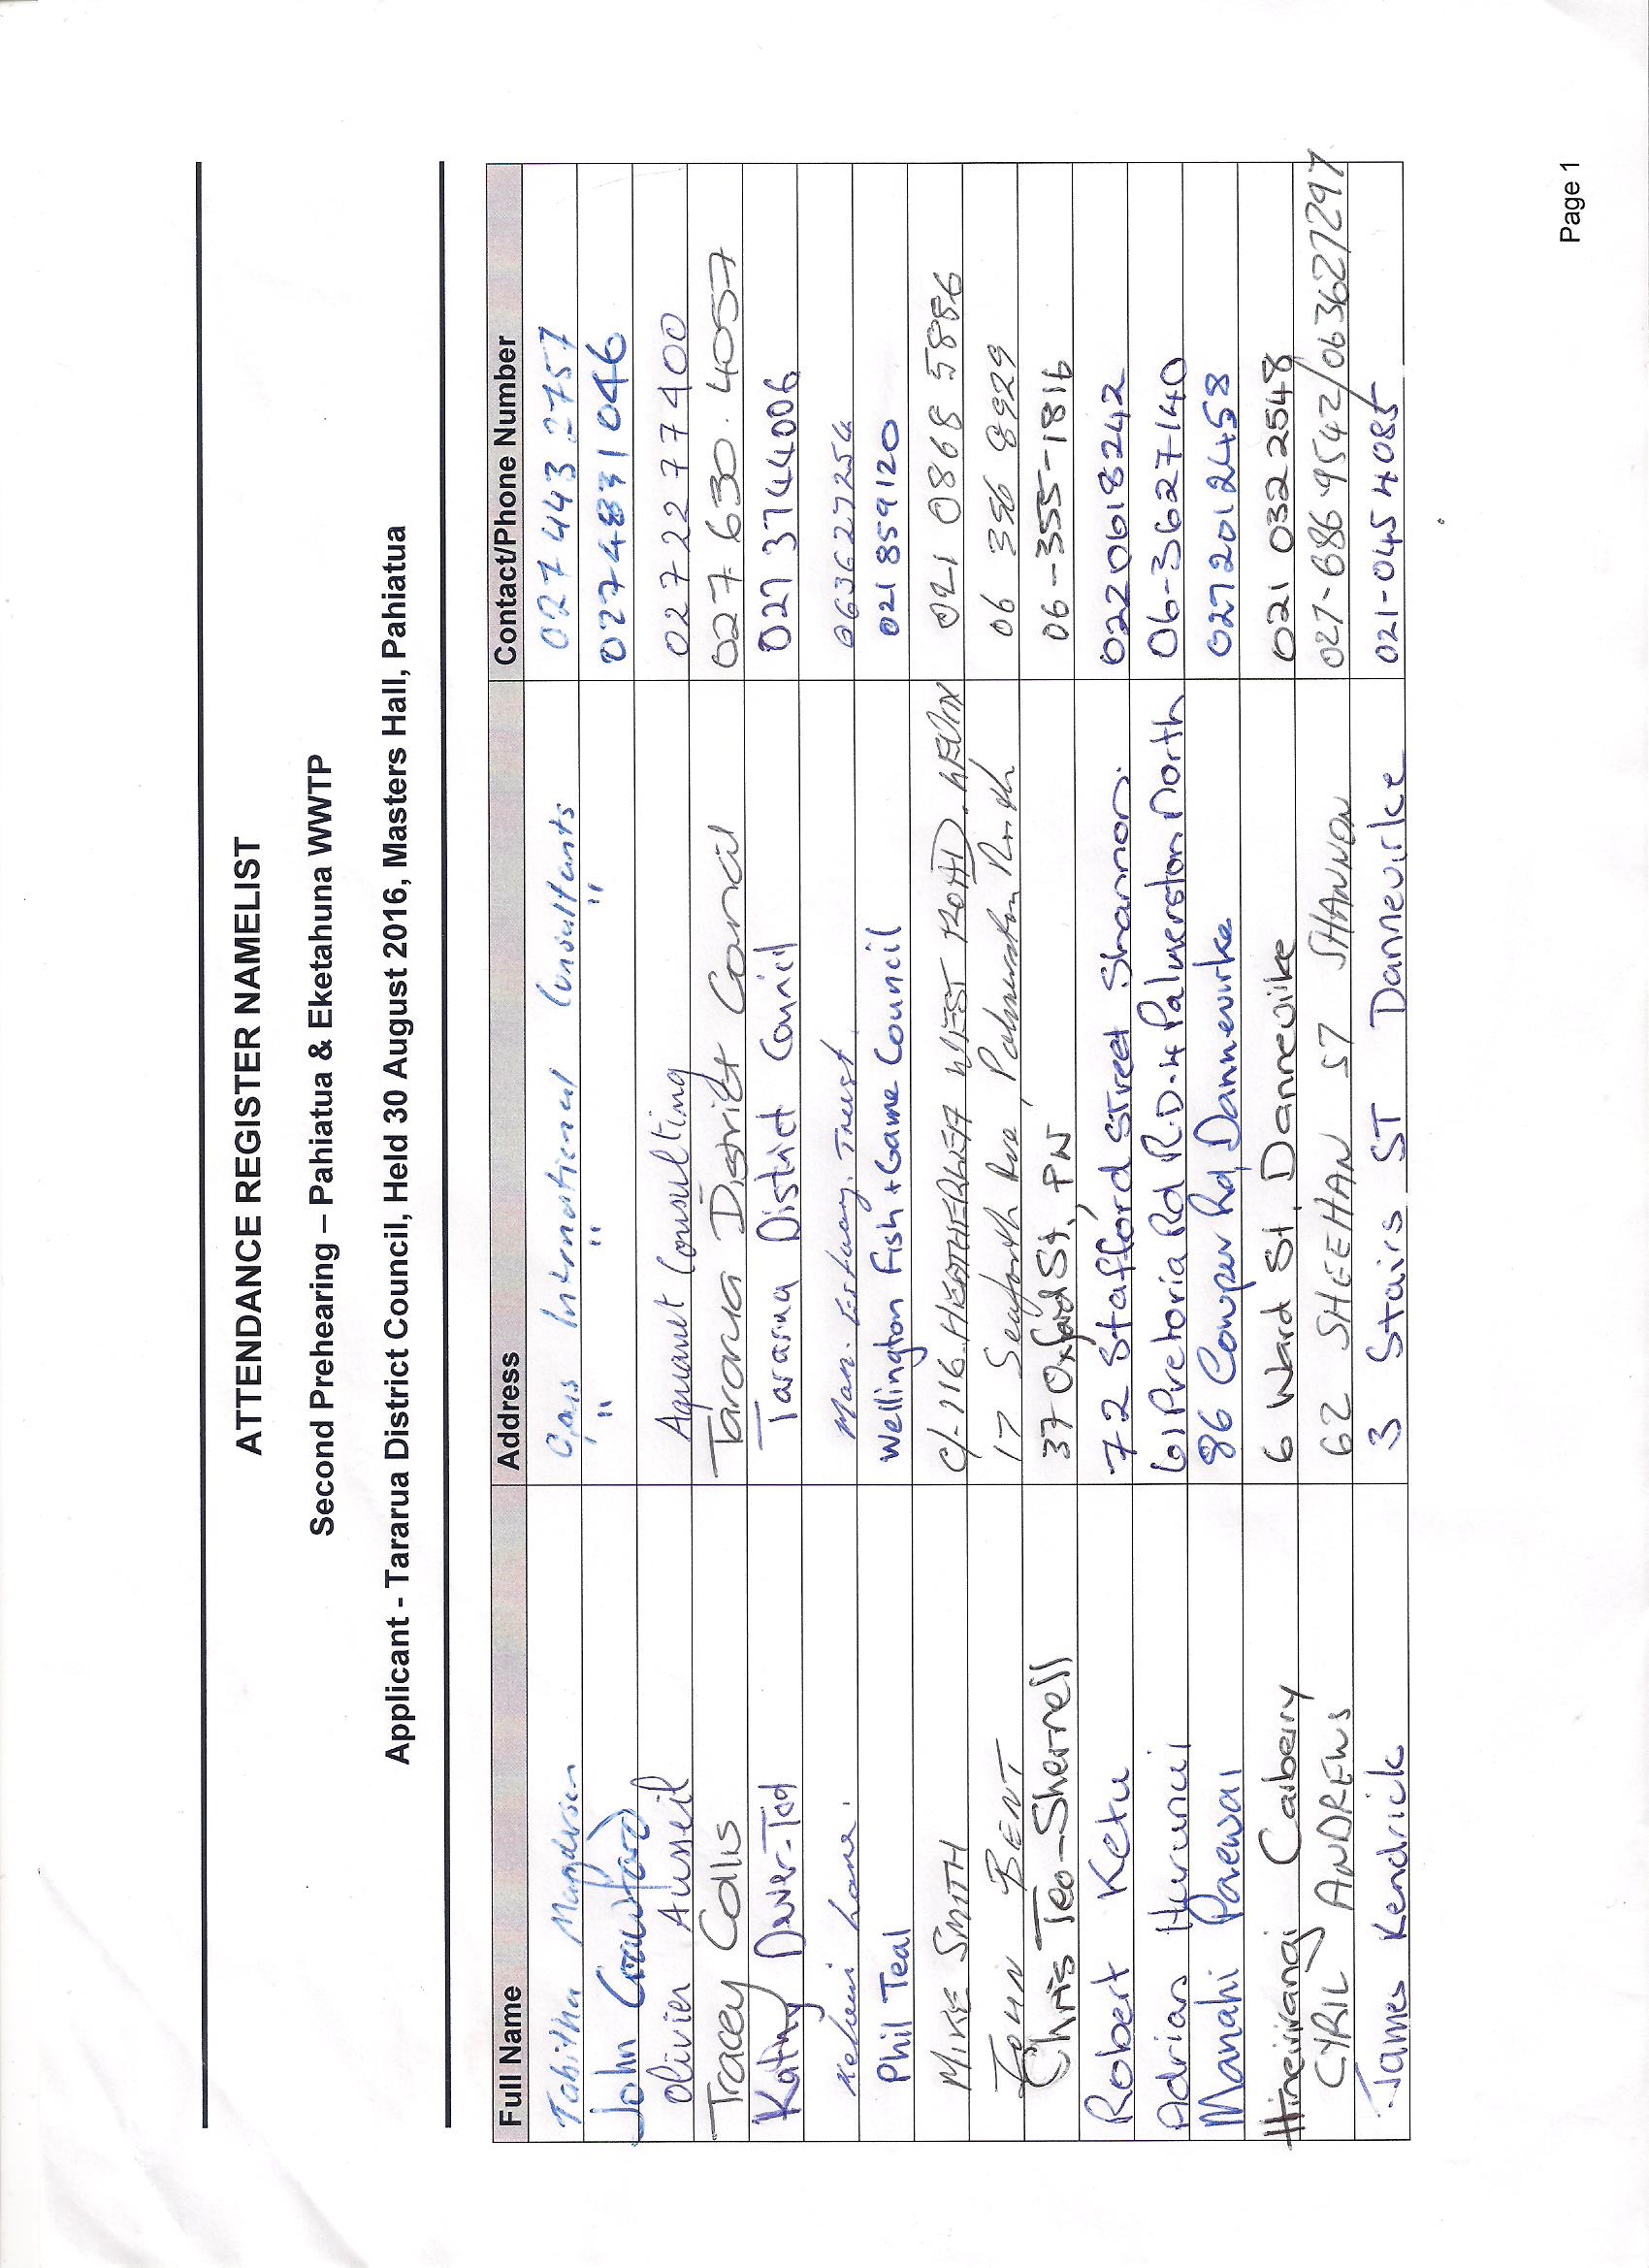 ATTENDANCE REGISTER NAMELIST
Second Prehearing – Pahiatua & Eketahuna WWTP
Applicant - Tararua District Council, Held 30 August 2016, Masters Hall, Pahiatua
Full Name Address Contact/Phone Number
Tabitha Manderson Opus International Consultants 027 443 2757
John Crawford " " " 027 4831 046
Olivier Ausseil Aquanet Consulting 02722277400
Tracey Collis Tararua District Council 027.630.4057
Kathy Dever-Tod Tararua District Council 027 3744006
Man. Estuary. Trust 063627254
Phil Teal Wellington Fish + Game Council 021 859120
MIKE SMITH C/-116 HEATHERLEA WEST ROAD. LEVIN 021 0868 5886
JOHN BENT 17 Seaforth Ave, Palmerston North 06 356 8929
Chris Teo-Sherrell 37 Oxford St, PN 06-355-1816
Robert Ketu 72 Stafford Street Shannon. 02206018242
Adrian Hurunui 61 Pretoria Rd R.D.4 Palmerston North 06-3627140
Manahi Paewai 86 Cowper Rd, Dannevirke 0272012458
Hineirirangi Carberry 6 Ward St, Dannevirke 021 032 2548
CYRIL ANDREWS 62 SHEEHAN ST SHANNON 027-686 9542/06 3627297
James Kendrick 3 Stairs ST Dannevirke 021-045 4085
Page 1